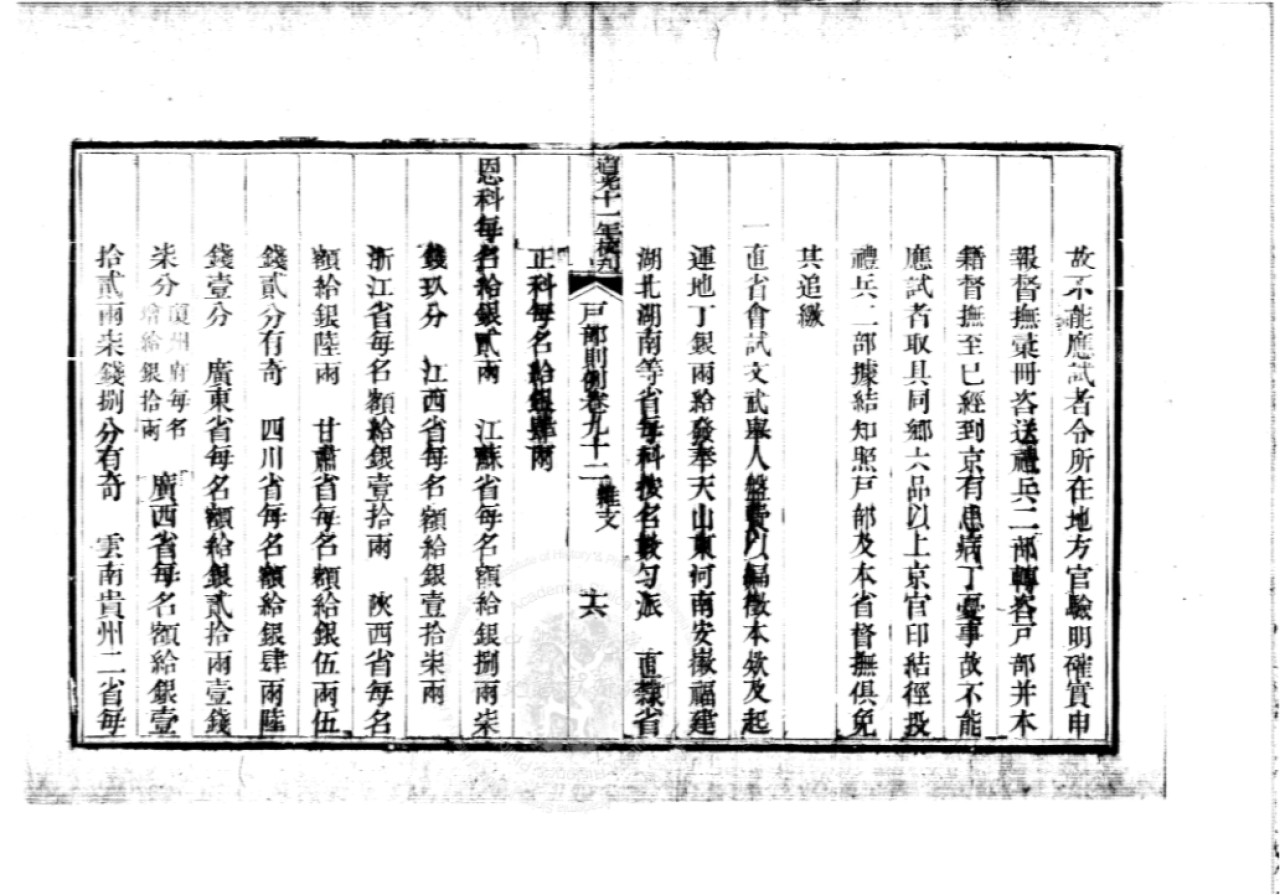 故不能應試者令所在地方官驗明確實申
報督撫彙冊咨送禮兵二部轉咨戸部并本
籍督撫至已經到京有患病丁憂事故不能
應試者取具同鄉六品以上京官印結徑投
禮兵二部據結知照戸部及本省督撫俱免
其追繳
一直省會試文武舉人盤費以編徵本欵及起
運地丁銀兩給發奉天山東河南安徽福建
湖北湖南等省每科按名數勻派 直隸省
道光十一年校刋 戸部則例卷九十二 雜支 十六
正科每名給銀肆兩
恩科每名給銀貳兩 江蘇省每名額給銀捌兩柒
錢玖分 江西省每名額給銀壹拾柒兩
浙江省每名額給銀壹拾兩 陜西省每名
額給銀陸兩 甘肅省每名額給銀伍兩伍
錢貳分有奇 四川省每名額給銀肆兩陸
錢壹分 廣東省每名額給銀貳拾兩壹錢
柒分 瓊州府每名增給銀拾兩 廣西省每名額給銀壹
拾貳兩柒錢捌分有奇 雲南貴州二省每